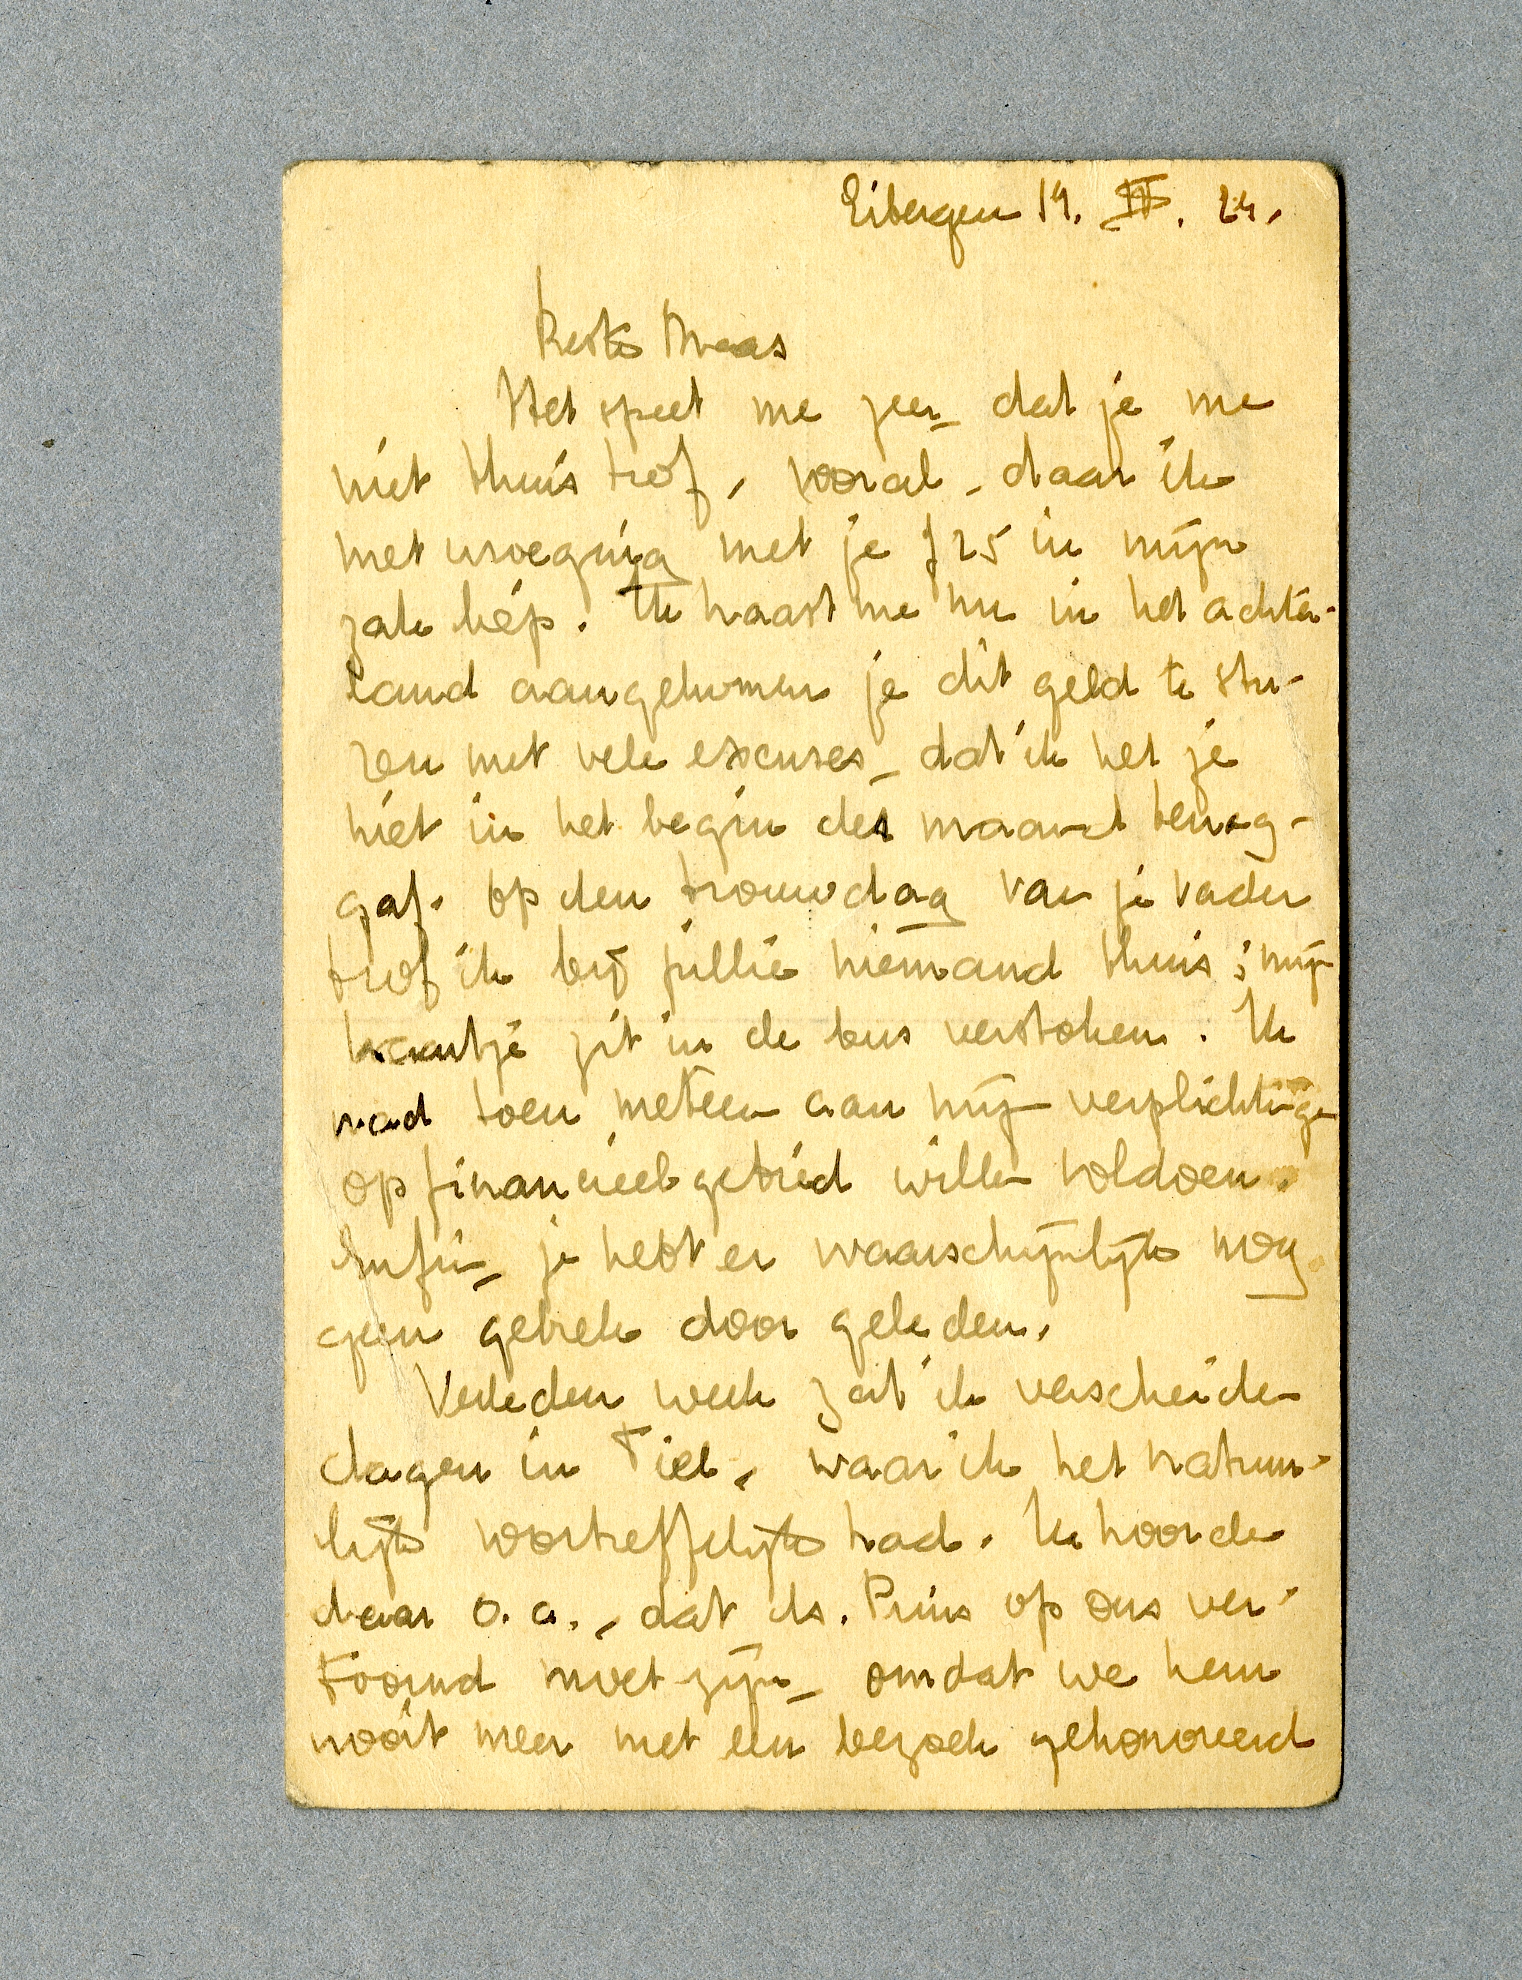 Eibergen 19. IV. 24.
Beste Maas
Het speet me zeer_ dat je me
niet thuis trof, vooral_ daar ik
met wroeging met je f 25 in mijn
zak liep. Ik haast me nu in het achter-
land aangekomen je dit geld te stu-
ren met vele excuses_ dat ik het je
niet in het begin der maand terug-
gaf. Op den trouwdag van je vader
trof ik bij jullie niemand thuis; mijn
kaartje zit in de bus verstoken. Ik
had toen meteen aan mijn verplichtingen
op financieel gebied willen voldoen.
Enfin_ je hebt er waarschijnlijk nog
geen gebrek door geleden.
Verleden week zat ik verscheiden
dagen in Tiel, waar ik het natuur-
lijk voortreffelijk had. Ik hoorde
daar o.a., dat ds. Prins op ons ver-
toornd moet zijn_ omdat we hem
nooit meer met een bezoek gehonoreerd